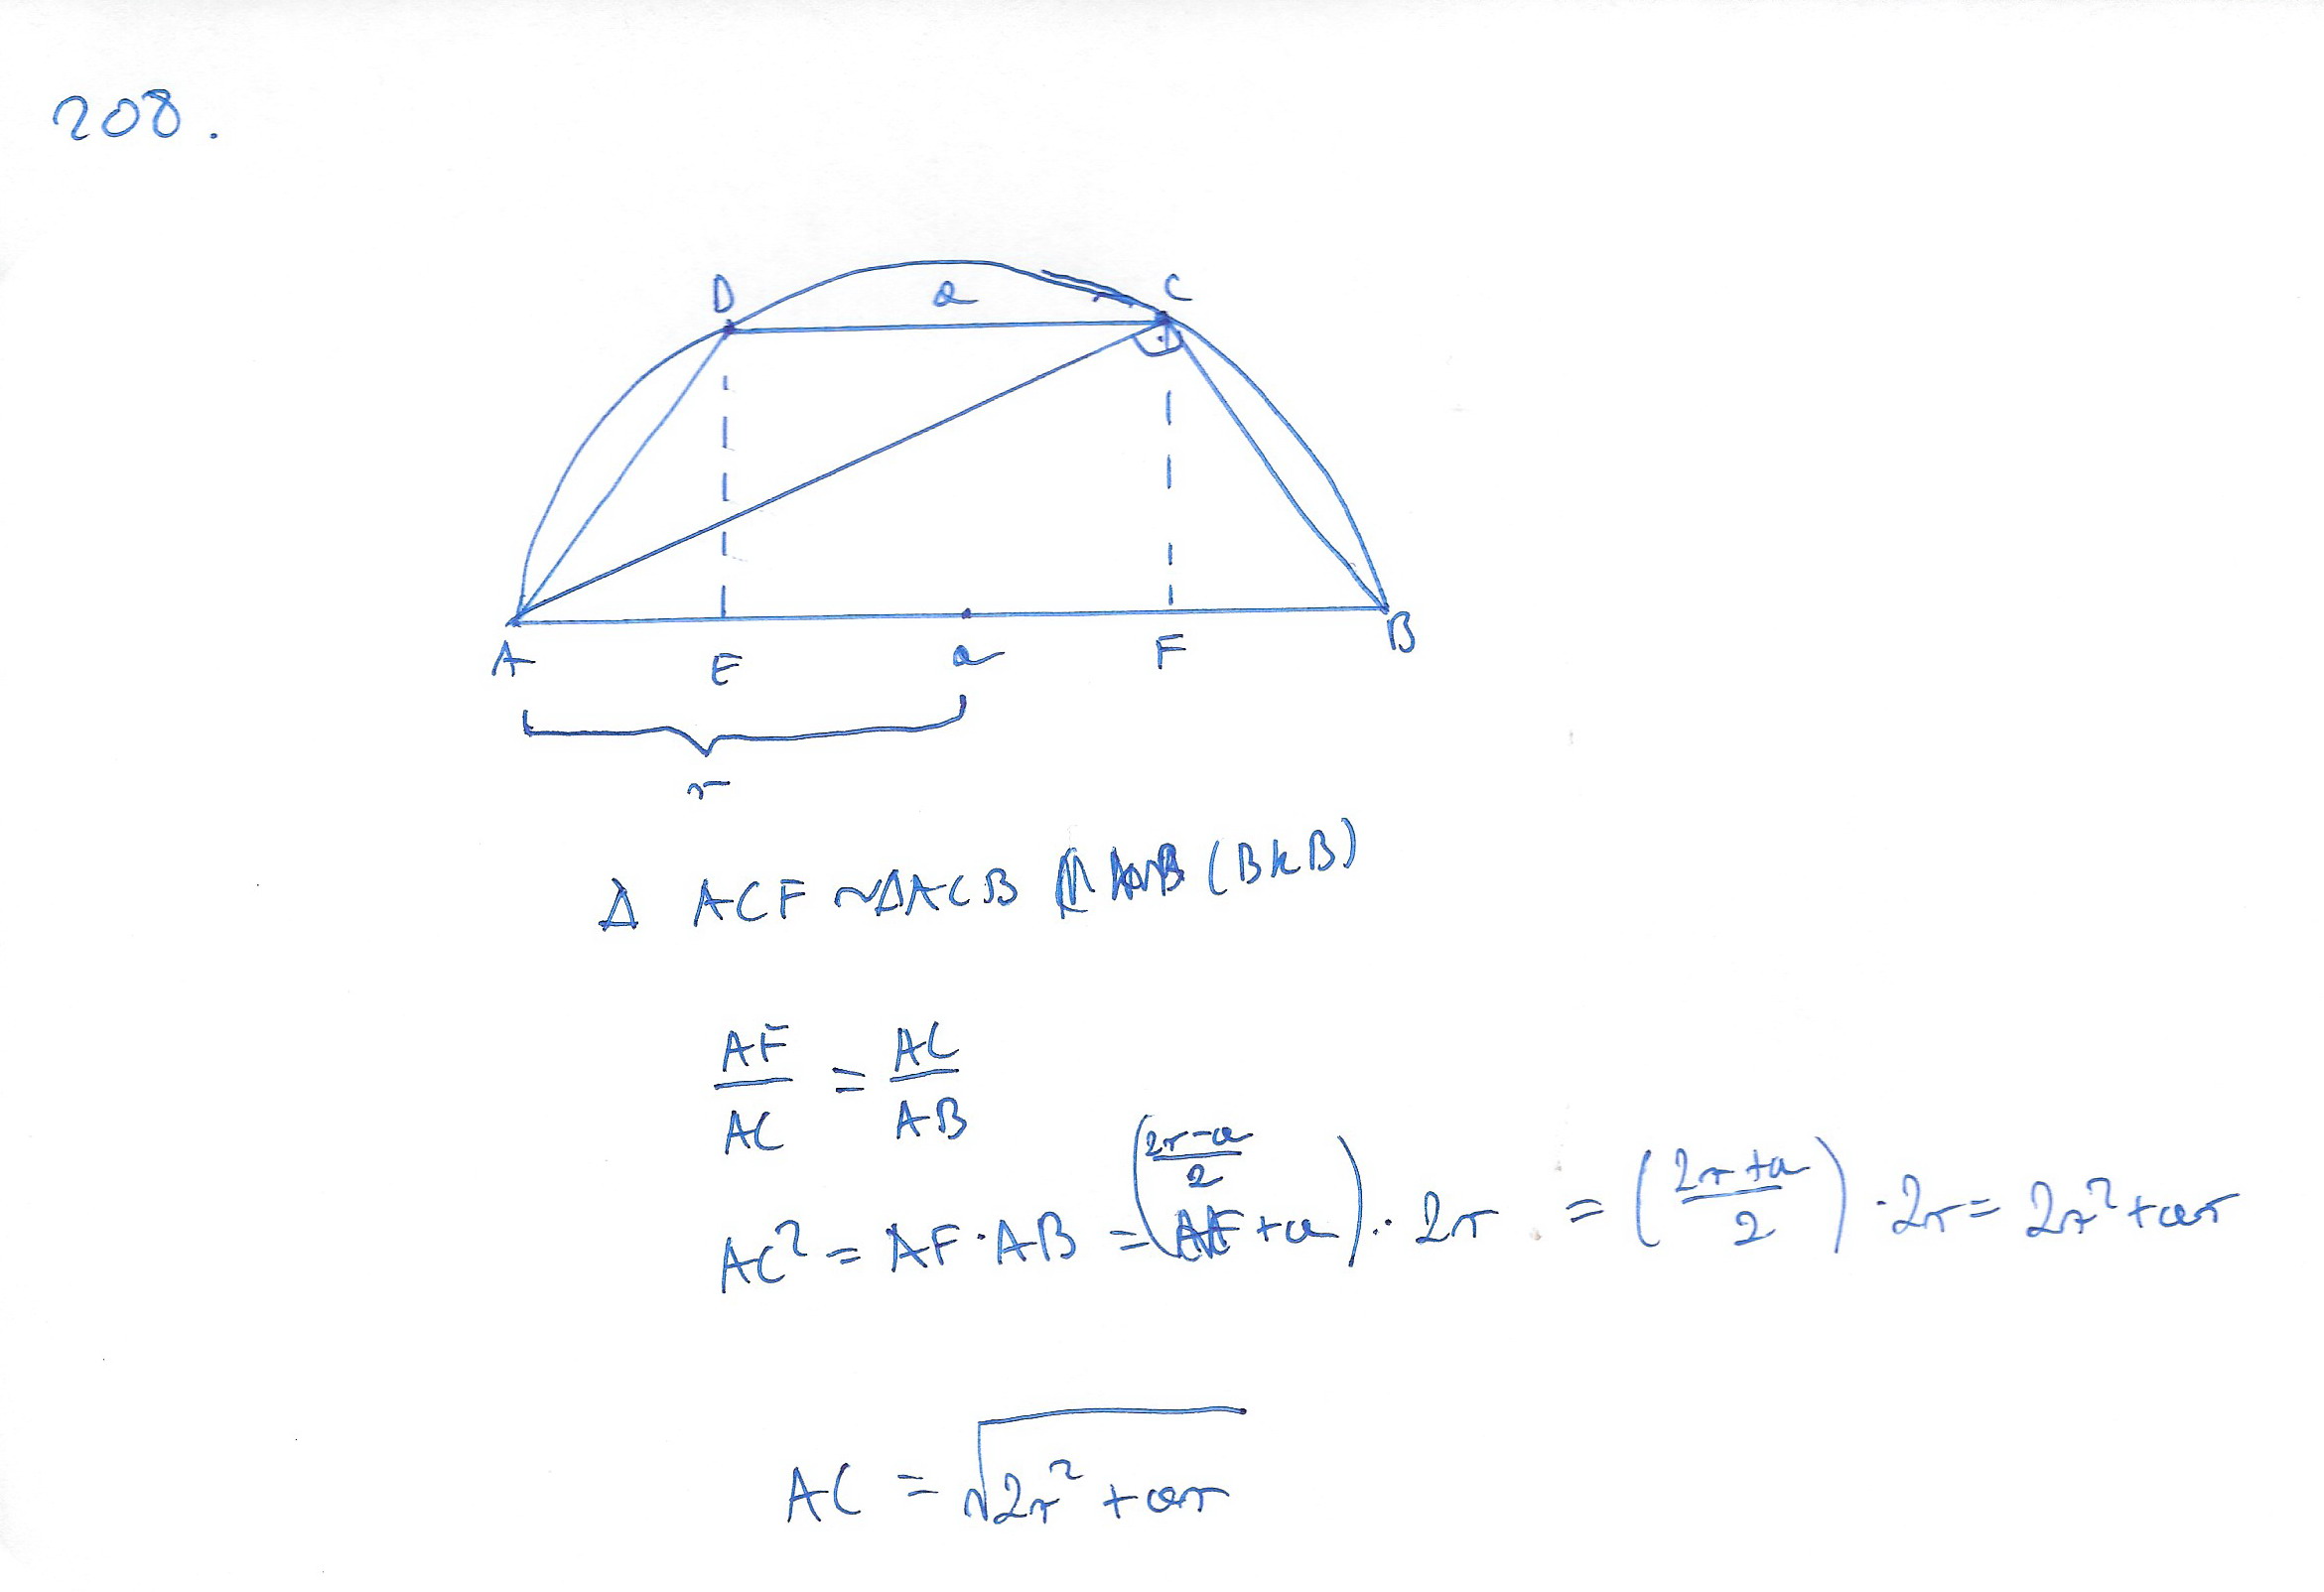 208.
D a C
A E a F B
r
Δ ACF ~ΔACB (BkB)
AF/AC = AC/AB
AC² = AF·AB = ((2r-a)/2 + a)·2r = ((2r+a)/2)·2r = 2r²+ar
AC = √(2r²+ar)